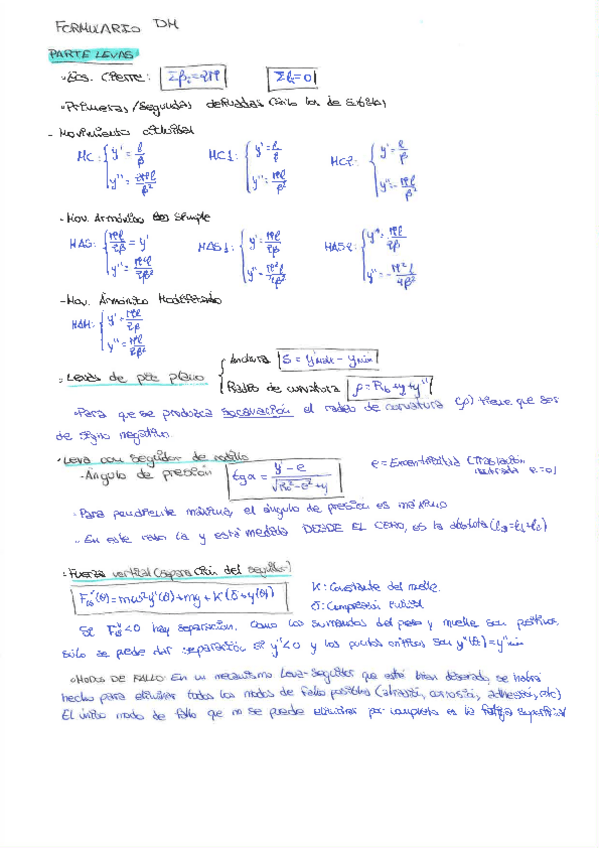 FORMULARIO DM
PARTE LEVAS:
· Ecs. Cierre: Σβi=2π Σli=0
· Primeras/Segundas derivadas (sólo las de subida)
- Movimiento cicloidal
MC: y' = l/β MC1: y' = l/β MC2: y' = l/β
y'' = 2πl/β² y'' = πl/β² y'' = -πl/β²
- Mov. Armónico Simple
MAS: πl/2β = y' MAS1: y' = πl/2β MAS2: y' = πl/2β
y'' = π²l/2β² y'' = π²l/4β² y'' = -π²l/4β²
- Mov. Armónico Modificado
MAM: y' = πl/2β
y''
· Levas de pie plano Anchura S = y'máx - y'min
Radio de curvatura ρ = Rb + y + y''
· Para que se produzca socavación el radio de curvatura (ρ) tiene que ser
de signo negativo.
· Leva con seguidor de rodillo
- Ángulo de presión tgα = y' - e / √(R0² - e²) + y e = Excentricidad (Traslación centrada e=0)
· Para pendiente máxima, el ángulo de presión es máximo
· En este caso la y está medida DESDE EL CERO, es la absoluta
· Fuerza vertical (separación del seguidor)
(θ) = mω²y''(θ) + mg + K(δ + y(θ)) K: Constante del muelle.
δ: Compresión inicial
Si <0 hay separación. Como los sumandos del peso y muelle son positivos,
sólo se puede dar separación si y''<0 y los puntos críticos son y''(θ) = y''min
· MODOS DE FALLO: En un mecanismo Leva-Seguidor que esté bien diseñado, se habrá
hecho para eliminar todos los modos de fallo posibles (abrasión, corrosión, adhesión, etc)
El único modo de fallo que no se puede eliminar por completo es la fatiga superficial